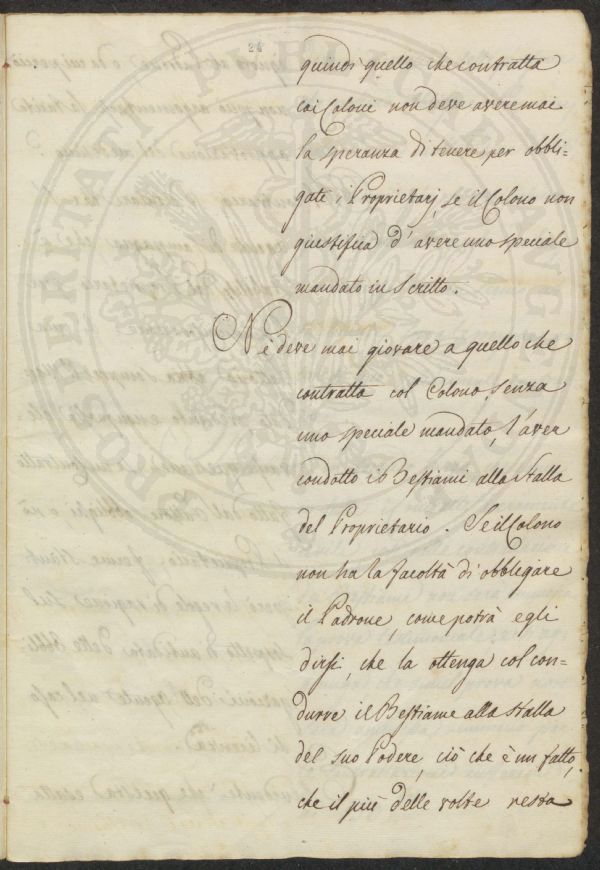 24
quindi quello che contratta
coi Coloni non deve avere mai
la speranza di tenere per obbli-
gati i Proprietarj, se il Colono non
giustifica d'avere uno speciale
mandato in scritto.
Nè deve mai giovare a quello che
contratta col Colono, senza
uno speciale mandato, l'aver
condotto i Bestiami alla stalla
del Proprietario. Se il Colono
non ha la facoltà di obbligare
il Padrone, come potrà egli
dirsi, che la ottenga col con-
durre il Bestiame alla stalla
del suo Podere, ciò che è un fatto,
che il più delle volte resta